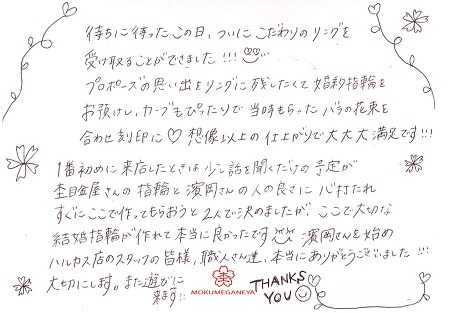 待ちに待ったこの日、ついにこだわりのリングを
受け取ることができました!!!
プロポーズの思い出をリングに残したくて婚約指輪を
お預けし、カーブもぴったりで当時もらったバラの花束を
合わせ刻印に♡想像以上の仕上がりで大大大満足です!!!
1番初めに来店したときは少し話を聞くだけの予定が
杢目金屋さんの指輪と濱岡さんの人の良さに心打たれ
すぐにここで作ってもらおうと2人で決めましたがここで大切な
結婚指輪が作れて本当に良かったです 濱岡さんを始め
ハルカス店のスタッフの皆様、職人さん達、本当にありがとうございました!!!
大切にします。また遊びに
来ます!!
MOKUMEGANEYA
THANKS
YOU